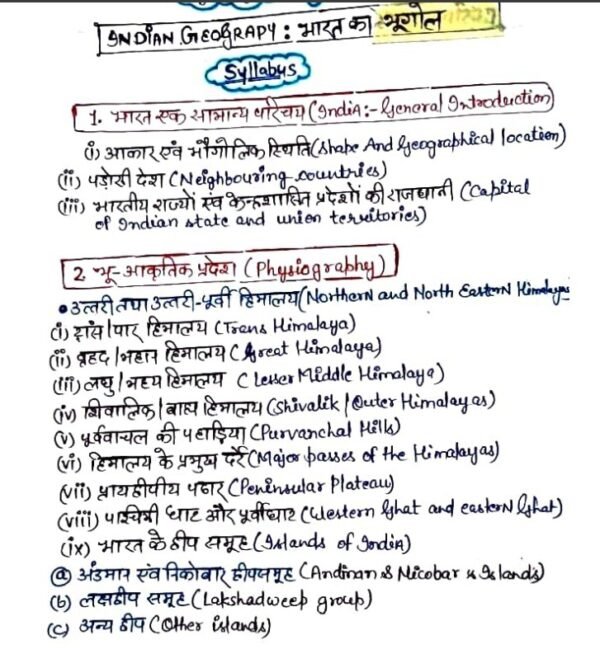 INDIAN GEOGRAPY : भारत का भूगोल
Syllabus
1. भारत एक सामान्य परिचय (India:- General Introduction)
(i) आकार एवं भौगोलिक स्थिति (Shape And Geographical location)
(ii) पड़ोसी देश (Neighbouring countries)
(iii) भारतीय राज्यों एंव केन्द्रशासित प्रदेशों की राजधानी (Capital
of Indian state and union territories)
2. भू-आकृतिक प्रदेश (Physiography)
• उत्तरी तथा उत्तरी-पूर्वी हिमालय (Northern and North Eastern Himalaya
(i) ट्रांस/पार हिमालय (Trans Himalaya)
(ii) वृहद/महान हिमालय (Great Himalaya)
(iii) लघु/मध्य हिमालय (Lesser Middle Himalaya)
(iv) शिवालिक/बाह्य हिमालय (Shivalik/Outer Himalayas)
(v) पूर्ववाचल की पहाड़िया (Purvanchal Hills)
(vi) हिमालय के प्रमुख दर्रे (Major passes of the Himalayas)
(vii) प्रायद्वीपीय पठार (Peninsular Plateau)
(viii) पश्चिमी घाट और पूर्वीघाट (Western Ghat and eastern Ghat)
(ix) भारत के द्वीप समूह (Islands of India)
(a) अंडमान एंव निकोबार द्वीपसमूह (Andman & Nicobar Islands)
(b) लक्षद्वीप समूह (Lakshadweep group)
(c) अन्य द्वीप (Other islands)